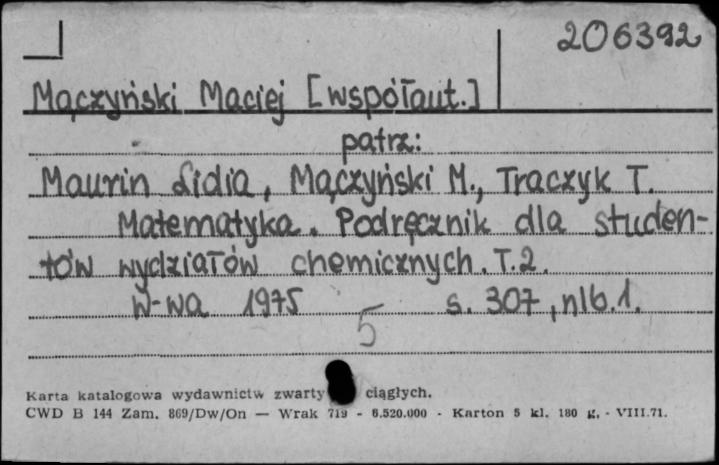 206392
Mączyński Maciej [współaut.]
patrz:
Maurin Lidia, Mączyński M., Traczyk T.
Matematyka. Podręcznik dla studen-
tów wydziałów chemicznych. T.2.
W-wa 1975 s. 307, nlb. 1.
5
Karta katalogowa wydawnictw zwarty ciągłych.
CWD B 144 Zam. 869/Dw/On — Wrak 719 - 6.520.000 - Karton 5 kl. 180 g. - VIII.71.